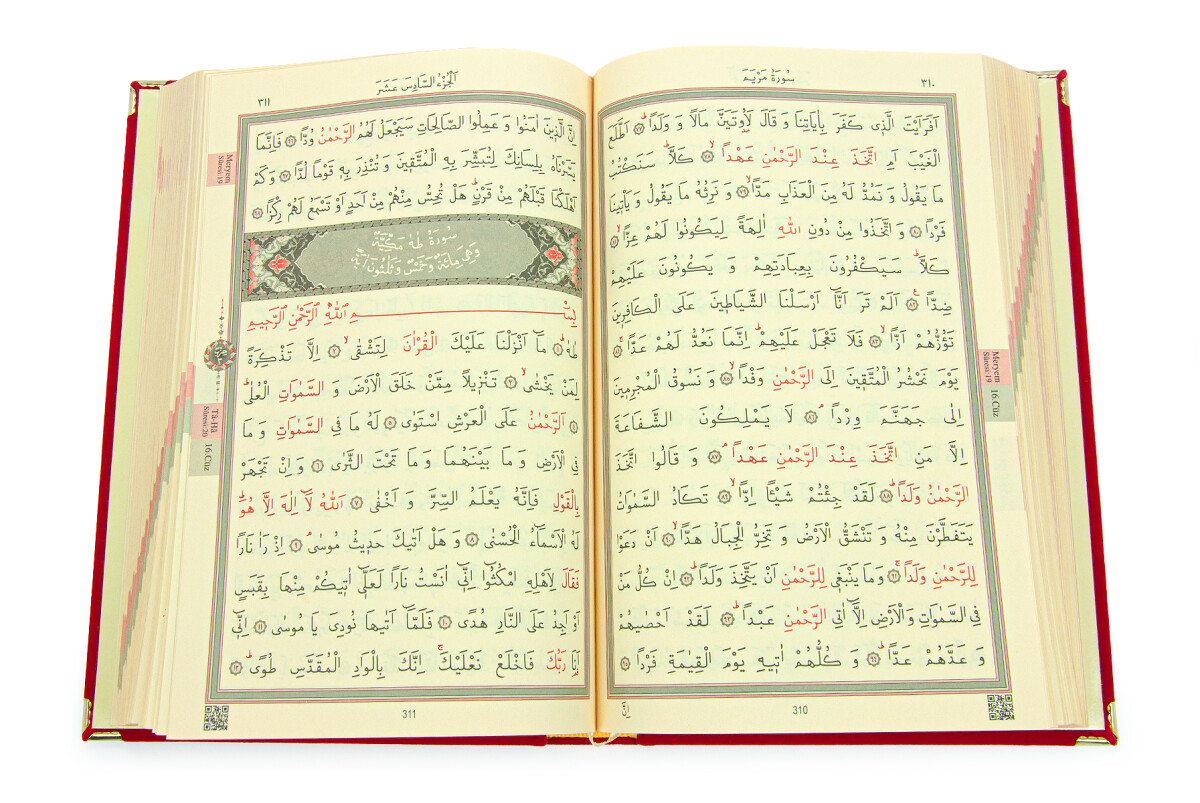 سُورَةُ مَرْيَمَ
٣١٠
اَفَرَاَيْتَ الَّذ۪ي كَفَرَ بِاٰيَاتِنَا وَ قَالَ لَاُوتَيَنَّ مَالًا وَ وَلَدًاۜ ﴿٧٧﴾ اَطَّلَعَ
الْغَيْبَ اَمِ اتَّخَذَ عِنْدَ الرَّحْمٰنِ عَهْدًاۙ ﴿٧٨﴾ كَلَّاۜ سَنَكْتُبُ
مَا يَقُولُ وَ نَمُدُّ لَهُ مِنَ الْعَذَابِ مَدًّاۙ ﴿٧٩﴾ وَ نَرِثُهُ مَا يَقُولُ وَ يَأْت۪ينَا
فَرْدًا ﴿٨٠﴾ وَ اتَّخَذُوا مِنْ دُونِ اللّٰهِ اٰلِهَةً لِيَكُونُوا لَهُمْ عِزًّاۙ ﴿٨١﴾
كَلَّاۜ سَيَكْفُرُونَ بِعِبَادَتِهِمْ وَ يَكُونُونَ عَلَيْهِمْ
ضِدًّا۟ ﴿٨٢﴾ اَلَمْ تَرَ اَنَّٓا اَرْسَلْنَا الشَّيَاط۪ينَ عَلَى الْكَافِر۪ينَ
تَؤُزُّهُمْ اَزًّاۙ ﴿٨٣﴾ فَلَا تَعْجَلْ عَلَيْهِمْۜ اِنَّمَا نَعُدُّ لَهُمْ عَدًّاۚ ﴿٨٤﴾
يَوْمَ نَحْشُرُ الْمُتَّق۪ينَ اِلَى الرَّحْمٰنِ وَفْدًاۙ ﴿٨٥﴾ وَ نَسُوقُ الْمُجْرِم۪ينَ
اِلٰى جَهَنَّمَ وِرْدًاۢ ﴿٨٦﴾ لَا يَمْلِكُونَ الشَّفَاعَةَ
اِلَّا مَنِ اتَّخَذَ عِنْدَ الرَّحْمٰنِ عَهْدًاۢ ﴿٨٧﴾ وَ قَالُوا اتَّخَذَ
الرَّحْمٰنُ وَلَدًاۜ ﴿٨٨﴾ لَقَدْ جِئْتُمْ شَيْـًٔا اِدًّاۙ ﴿٨٩﴾ تَكَادُ السَّمٰوَاتُ
يَتَفَطَّرْنَ مِنْهُ وَ تَنْشَقُّ الْاَرْضُ وَ تَخِرُّ الْجِبَالُ هَدًّاۙ ﴿٩٠﴾ اَنْ دَعَوْا
لِلرَّحْمٰنِ وَلَدًاۚ ﴿٩١﴾ وَمَا يَنْبَغ۪ي لِلرَّحْمٰنِ اَنْ يَتَّخِذَ وَلَدًاۜ ﴿٩٢﴾ اِنْ كُلُّ مَنْ
فِي السَّمٰوَاتِ وَالْاَرْضِ اِلَّٓا اٰتِي الرَّحْمٰنِ عَبْدًاۜ ﴿٩٣﴾ لَقَدْ اَحْصٰيهُمْ
وَ عَدَّهُمْ عَدًّاۜ ﴿٩٤﴾ وَ كُلُّهُمْ اٰت۪يهِ يَوْمَ الْقِيٰمَةِ فَرْدًا ﴿٩٥﴾
اِنَّ
310
Meryem
Sûresi:19
16.Cüz
اَلْجُزْءُ السَّادِسَ عَشَرَ
٣١١
اِنَّ الَّذ۪ينَ اٰمَنُوا وَ عَمِلُوا الصَّالِحَاتِ سَيَجْعَلُ لَهُمُ الرَّحْمٰنُ وُدًّا ﴿٩٦﴾ فَاِنَّمَا
يَسَّرْنَاهُ بِلِسَانِكَ لِتُبَشِّرَ بِهِ الْمُتَّق۪ينَ وَ تُنْذِرَ بِه۪ قَوْمًا لُدًّا ﴿٩٧﴾ وَ كَمْ
اَهْلَكْنَا قَبْلَهُمْ مِنْ قَرْنٍۜ هَلْ تُحِسُّ مِنْهُمْ مِنْ اَحَدٍ اَوْ تَسْمَعُ لَهُمْ رِكْزًا ﴿٩٨﴾
سُورَةُ طٰهٰ مَكِّيَّةٌ
وَهِيَ مِائَةٌ وَخَمْسٌ وَثَلٰثُونَ اٰيَةً
بِسْمِ اللّٰهِ الرَّحْمٰنِ الرَّح۪يمِ
طٰهٰۜ ﴿١﴾ مَٓا اَنْزَلْنَا عَلَيْكَ الْقُرْاٰنَ لِتَشْقٰىۙ ﴿٢﴾ اِلَّا تَذْكِرَةً
لِمَنْ يَخْشٰىۙ ﴿٣﴾ تَنْز۪يلًا مِمَّنْ خَلَقَ الْاَرْضَ وَ السَّمٰوَاتِ الْعُلٰىۜ
﴿٤﴾ اَلرَّحْمٰنُ عَلَى الْعَرْشِ اسْتَوٰى ﴿٥﴾ لَهُ مَا فِي السَّمٰوَاتِ وَ مَا
فِي الْاَرْضِ وَ مَا بَيْنَهُمَا وَ مَا تَحْتَ الثَّرٰى ﴿٦﴾ وَ اِنْ تَجْهَرْ
بِالْقَوْلِ فَاِنَّهُ يَعْلَمُ السِّرَّ وَ اَخْفٰى ﴿٧﴾ اَللّٰهُ لَٓا اِلٰهَ اِلَّا هُوَۜ
لَهُ الْاَسْمَٓاءُ الْحُسْنٰى ﴿٨﴾ وَ هَلْ اَتٰيكَ حَد۪يثُ مُوسٰىۢ ﴿٩﴾ اِذْ رَاٰ نَارًا
فَقَالَ لِاَهْلِهِ امْكُثُٓوا اِنّ۪ٓي اٰنَسْتُ نَارًا لَعَلّ۪ٓي اٰت۪يكُمْ مِنْهَا بِقَبَسٍ
اَوْ اَجِدُ عَلَى النَّارِ هُدًى ﴿١٠﴾ فَلَمَّٓا اَتٰيهَا نُودِيَ يَا مُوسٰى ﴿١١﴾ اِنّ۪ٓي
اَنَا۬ رَبُّكَ فَاخْلَعْ نَعْلَيْكَۚ اِنَّكَ بِالْوَادِ الْمُقَدَّسِ طُوًىۜ ﴿١٢﴾
311
Meryem
Sûresi:19
Tâ-Hâ
Sûresi:20
16.Cüz